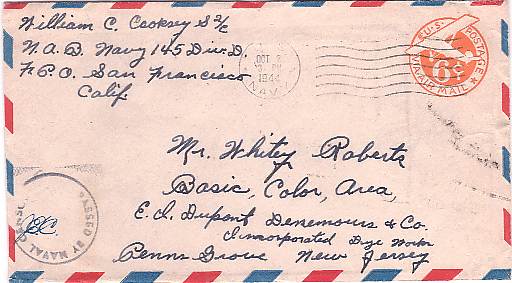 William C. Cooksey S 2/c
N.A.B. Navy 145 Div. D.
F.P.O. San Francisco,
Calif.
OCT 2
PM
1944
NAVY
U.S. POSTAGE
6¢
VIA AIR MAIL
Mr. Whitey Roberts
Basic, Color, Area,
E. I. Dupont Denemours & Co.
Incorporated Dye Works
Penns Grove New Jersey
PASSED BY NAVAL CENSOR